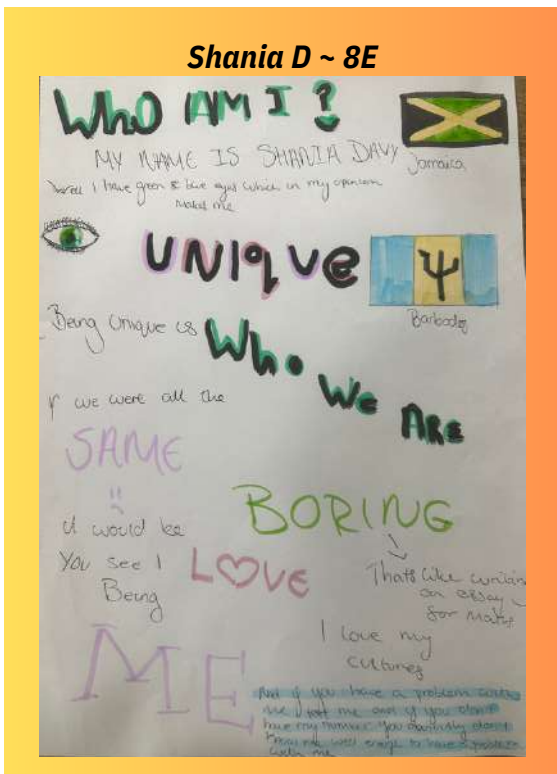 Shania D ~ 8E
WHO AM I?
MY NAME IS SHANIA DAVY
Jamaica
I have green & blue eyes which in my opinion
makes me
UNIQUE
Barbados
Being Unique is
WHO
WE
ARE
if we were all the
SAME
it would be
BORING
Thats like writing
an essay
for maths
You see I
LOVE
Being
ME
I love my
cultures
And if you have a problem with
me text me and if you don't
have my number you obviously don't
know me well enough to have a problem
with me